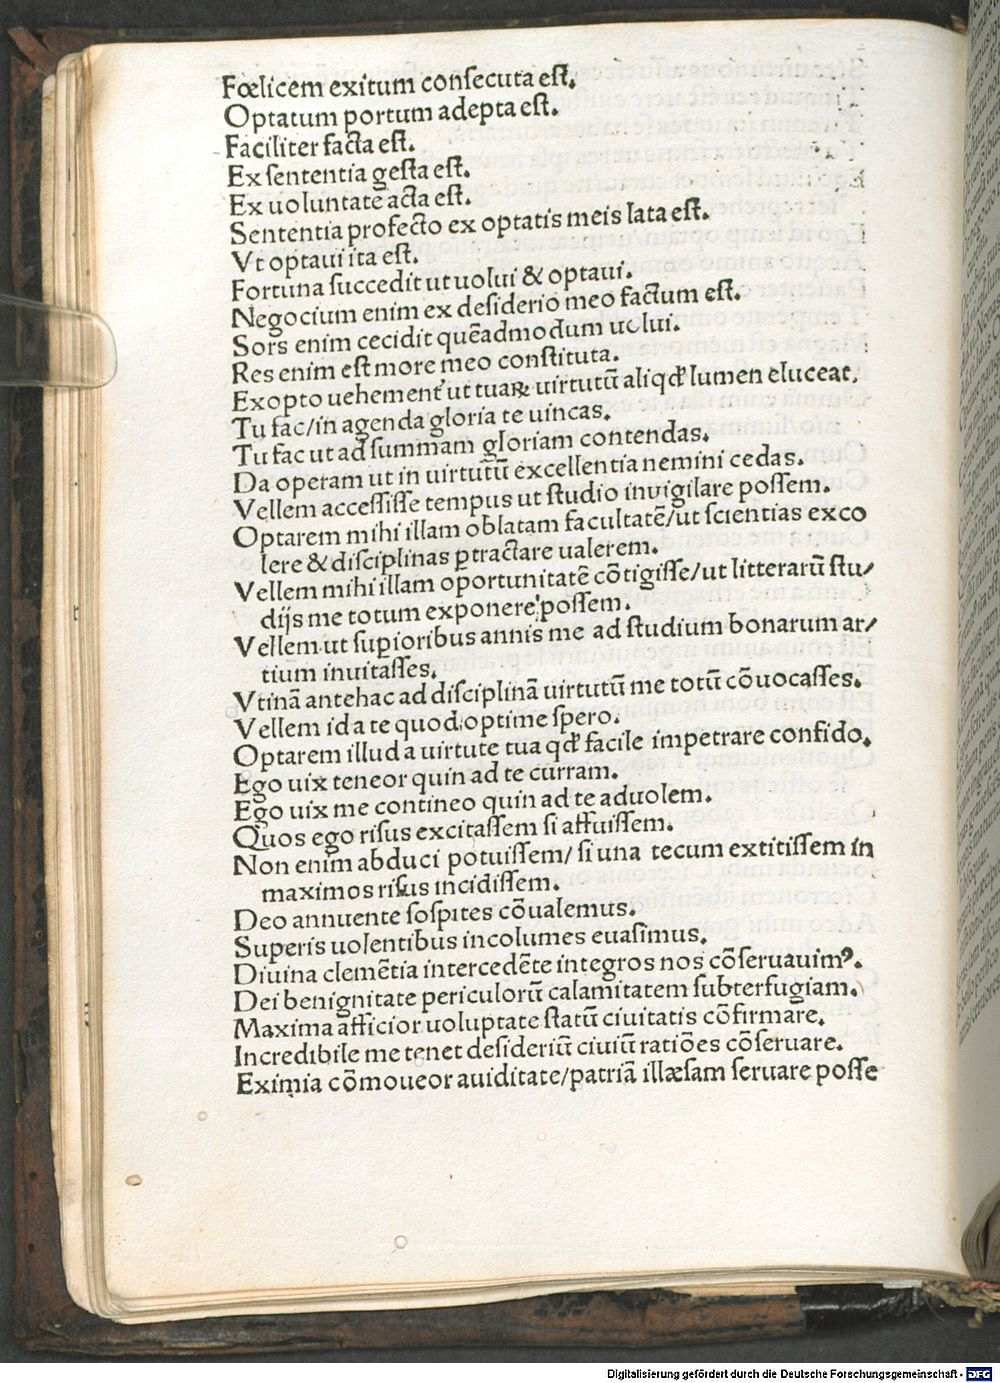 Fœlicem exitum conſecuta eſt.
Optatum portum adepta eſt.
Faciliter facta eſt.
Ex ſententia geſta eſt.
Ex uoluntate acta eſt.
Sententia profecto ex optatis meis lata eſt.
Vt optaui ita eſt.
Fortuna ſuccedit ut uolui & optaui.
Negocium enim ex deſiderio meo factum eſt.
Sors enim cecidit quēadmodum uolui.
Res enim eſt more meo conſtituta.
Exopto uehement᷑ ut tuaꝝ uirtutū aliqđ lumen eluceat.
Tu fac/in agenda gloria te uincas.
Tu fac ut ad ſummam gloriam contendas.
Da operam ut in uirtutū excellentia nemini cedas.
Vellem acceſſiſſe tempus ut ſtudio inuigilare poſſem.
Optarem mihi illam oblatam facultatē/ut ſcientias exco
lere & diſciplinas ꝑtractare ualerem.
Vellem mihi illam oportunitatē cōtigiſſe/ut litterarū ſtu/
dijs me totum exponere poſſem.
Vellem ut ſuꝑioribus annis me ad ſtudium bonarum ar/
tium inuitaſſes.
Vtinā antehac ad diſciplinā uirtutū me totū cōuocaſſes.
Vellem id a te quod optime ſpero.
Optarem illud a uirtute tua qđ facile impetrare confido.
Ego uix teneor quin ad te curram.
Ego uix me contineo quin ad te aduolem.
Quos ego riſus excitaſſem ſi affuiſſem.
Non enim abduci potuiſſem/ ſi una tecum extitiſſem in
maximos riſus incidiſſem.
Deo annuente ſoſpites cōualemus.
Superis uolentibus incolumes euaſimus.
Diuina clemētia intercedēte integros nos cōſeruauimꝰ.
Dei benignitate periculorū calamitatem ſubterfugiam.
Maxima afficior uoluptate ſtatū ciuitatis cōfirmare.
Incredibile me tenet deſideriū ciuiū ratiōes cōſeruare.
Eximia cōmoueor auiditate/patriā illæſam ſeruare poſſe
Digitalisierung gefördert durch die Deutsche Forschungsgemeinschaft - DFG